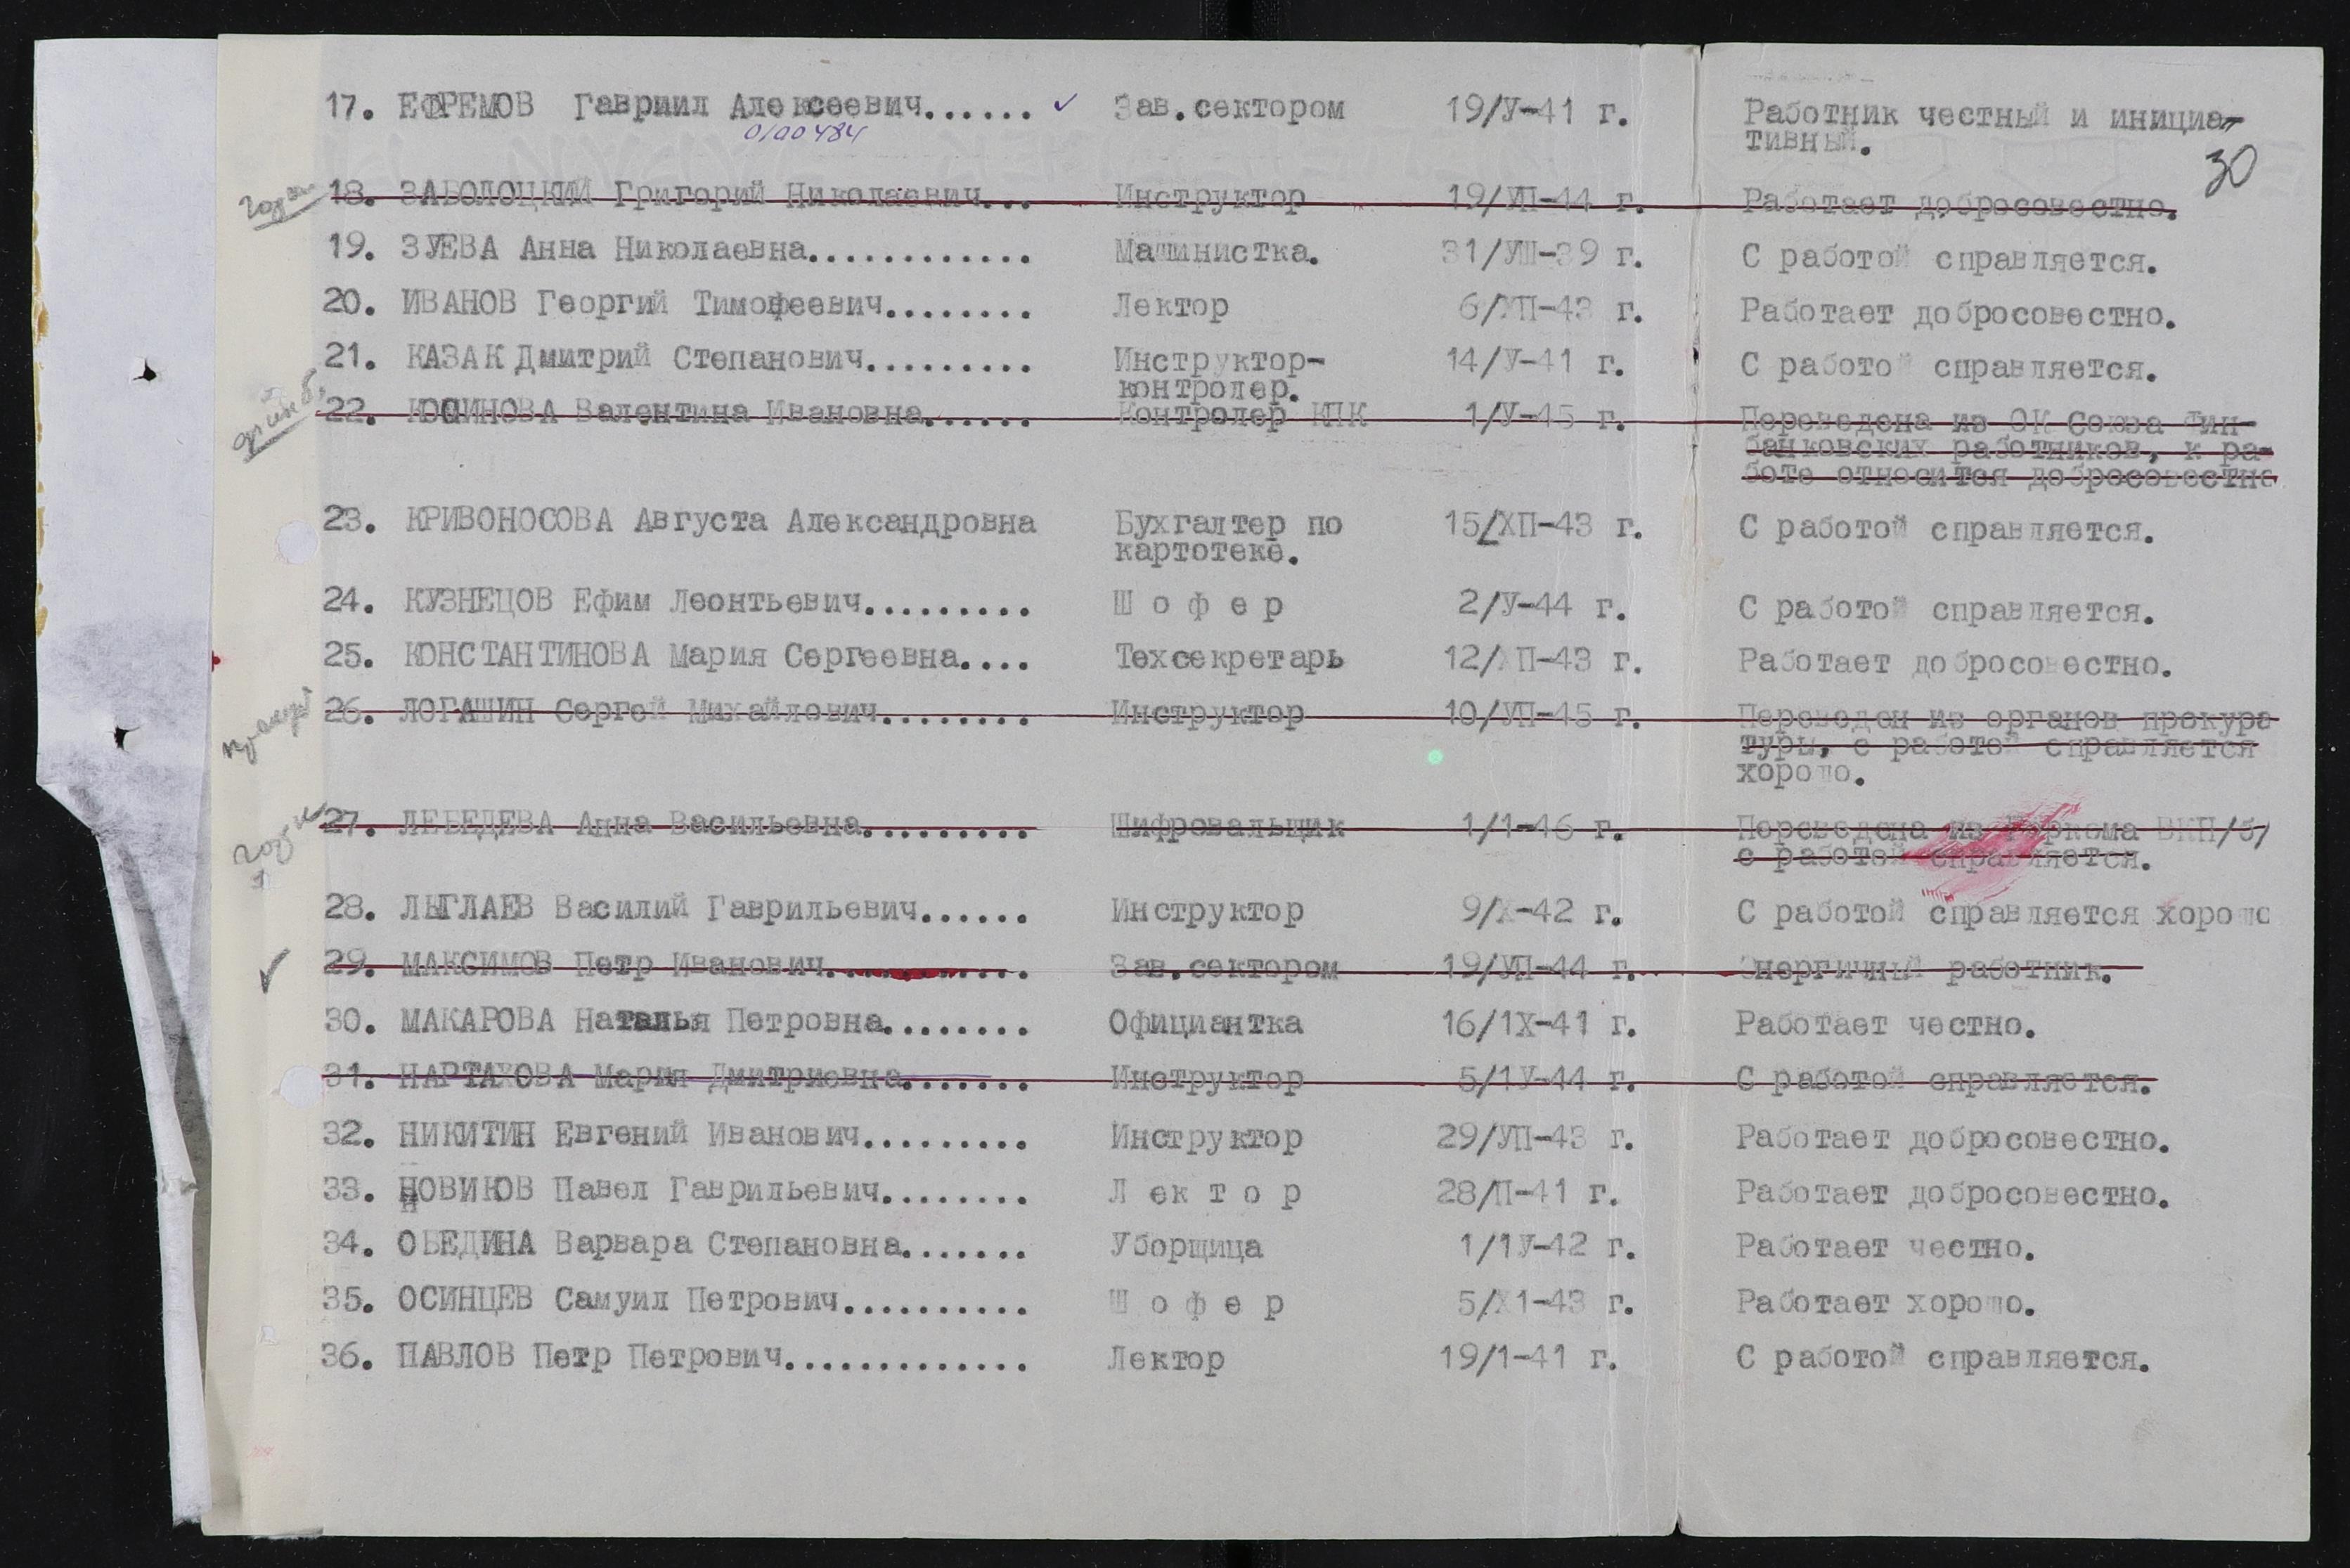 17. ЕФРЕМОВ Гавриил Алексеевич...... ✓ Зав.сектором 19/У-41 г. Работник честный и инициа-
0100484 тивный.
30
18. ЗАБОЛОЦКИЙ Григорий Николаевич... Инструктор 19/УП-44 г. Работает добросовестно.
19. ЗУЕВА Анна Николаевна............ Машинистка. 31/УШ-39 г. С работой справляется.
20. ИВАНОВ Георгий Тимофеевич........ Лектор 6/ХП-43 г. Работает добросовестно.
21. КАЗАК Дмитрий Степанович......... Инструктор- 14/У-41 г. С работой справляется.
контролер.
22. КОШИНОВА Валентина Ивановна...... Контролер КПК 1/У-45 г. Переведена из ОК Союза Фин-
банковских работников, к ра-
боте относится добросовестно
23. КРИВОНОСОВА Августа Александровна Бухгалтер по 15/ХП-43 г. С работой справляется.
картотеке.
24. КУЗНЕЦОВ Ефим Леонтьевич......... Ш о ф е р 2/У-44 г. С работой справляется.
25. КОНСТАНТИНОВА Мария Сергеевна.... Техсекретарь 12/ХП-43 г. Работает добросовестно.
26. ЛОГАШИН Сергей Михайлович........ Инструктор 10/УП-45 г. Переведен из органов прокура
туры, с работой справляется
хорошо.
27. ЛЕБЕДЕВА Анна Васильевна......... Шифровальщик 1/1-46 г. Переведена из Горкома ВКП/б/
с работой справляется.
28. ЛЫГЛАЕВ Василий Гаврильевич...... Инструктор 9/Х-42 г. С работой справляется хорошо
✓ 29. МАКСИМОВ Петр Иванович........... Зав.сектором 19/УП-44 г. Энергичный работник.
30. МАКАРОВА Наталья Петровна........ Официантка 16/1Х-41 г. Работает честно.
31. НАРТАХОВА Мария Дмитриевна....... Инструктор 5/1У-44 г. С работой справляется.
32. НИКИТИН Евгений Иванович......... Инструктор 29/УП-43 г. Работает добросовестно.
33. НОВИКОВ Павел Гаврильевич........ Л е к т о р 28/П-41 г. Работает добросовестно.
34. ОБЕДИНА Варвара Степановна....... Уборщица 1/1У-42 г. Работает честно.
35. ОСИНЦЕВ Самуил Петрович.......... Ш о ф е р 5/Х1-43 г. Работает хорошо.
36. ПАВЛОВ Петр Петрович............. Лектор 19/1-41 г. С работой справляется.